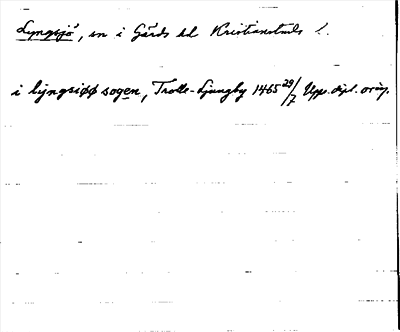 Lyngsjö, sn i Gärds hd Kristianstads l.
i lijngsiøø sogen, Trolle-Ljungby 1465 29/7 Upps. dipl. orig.